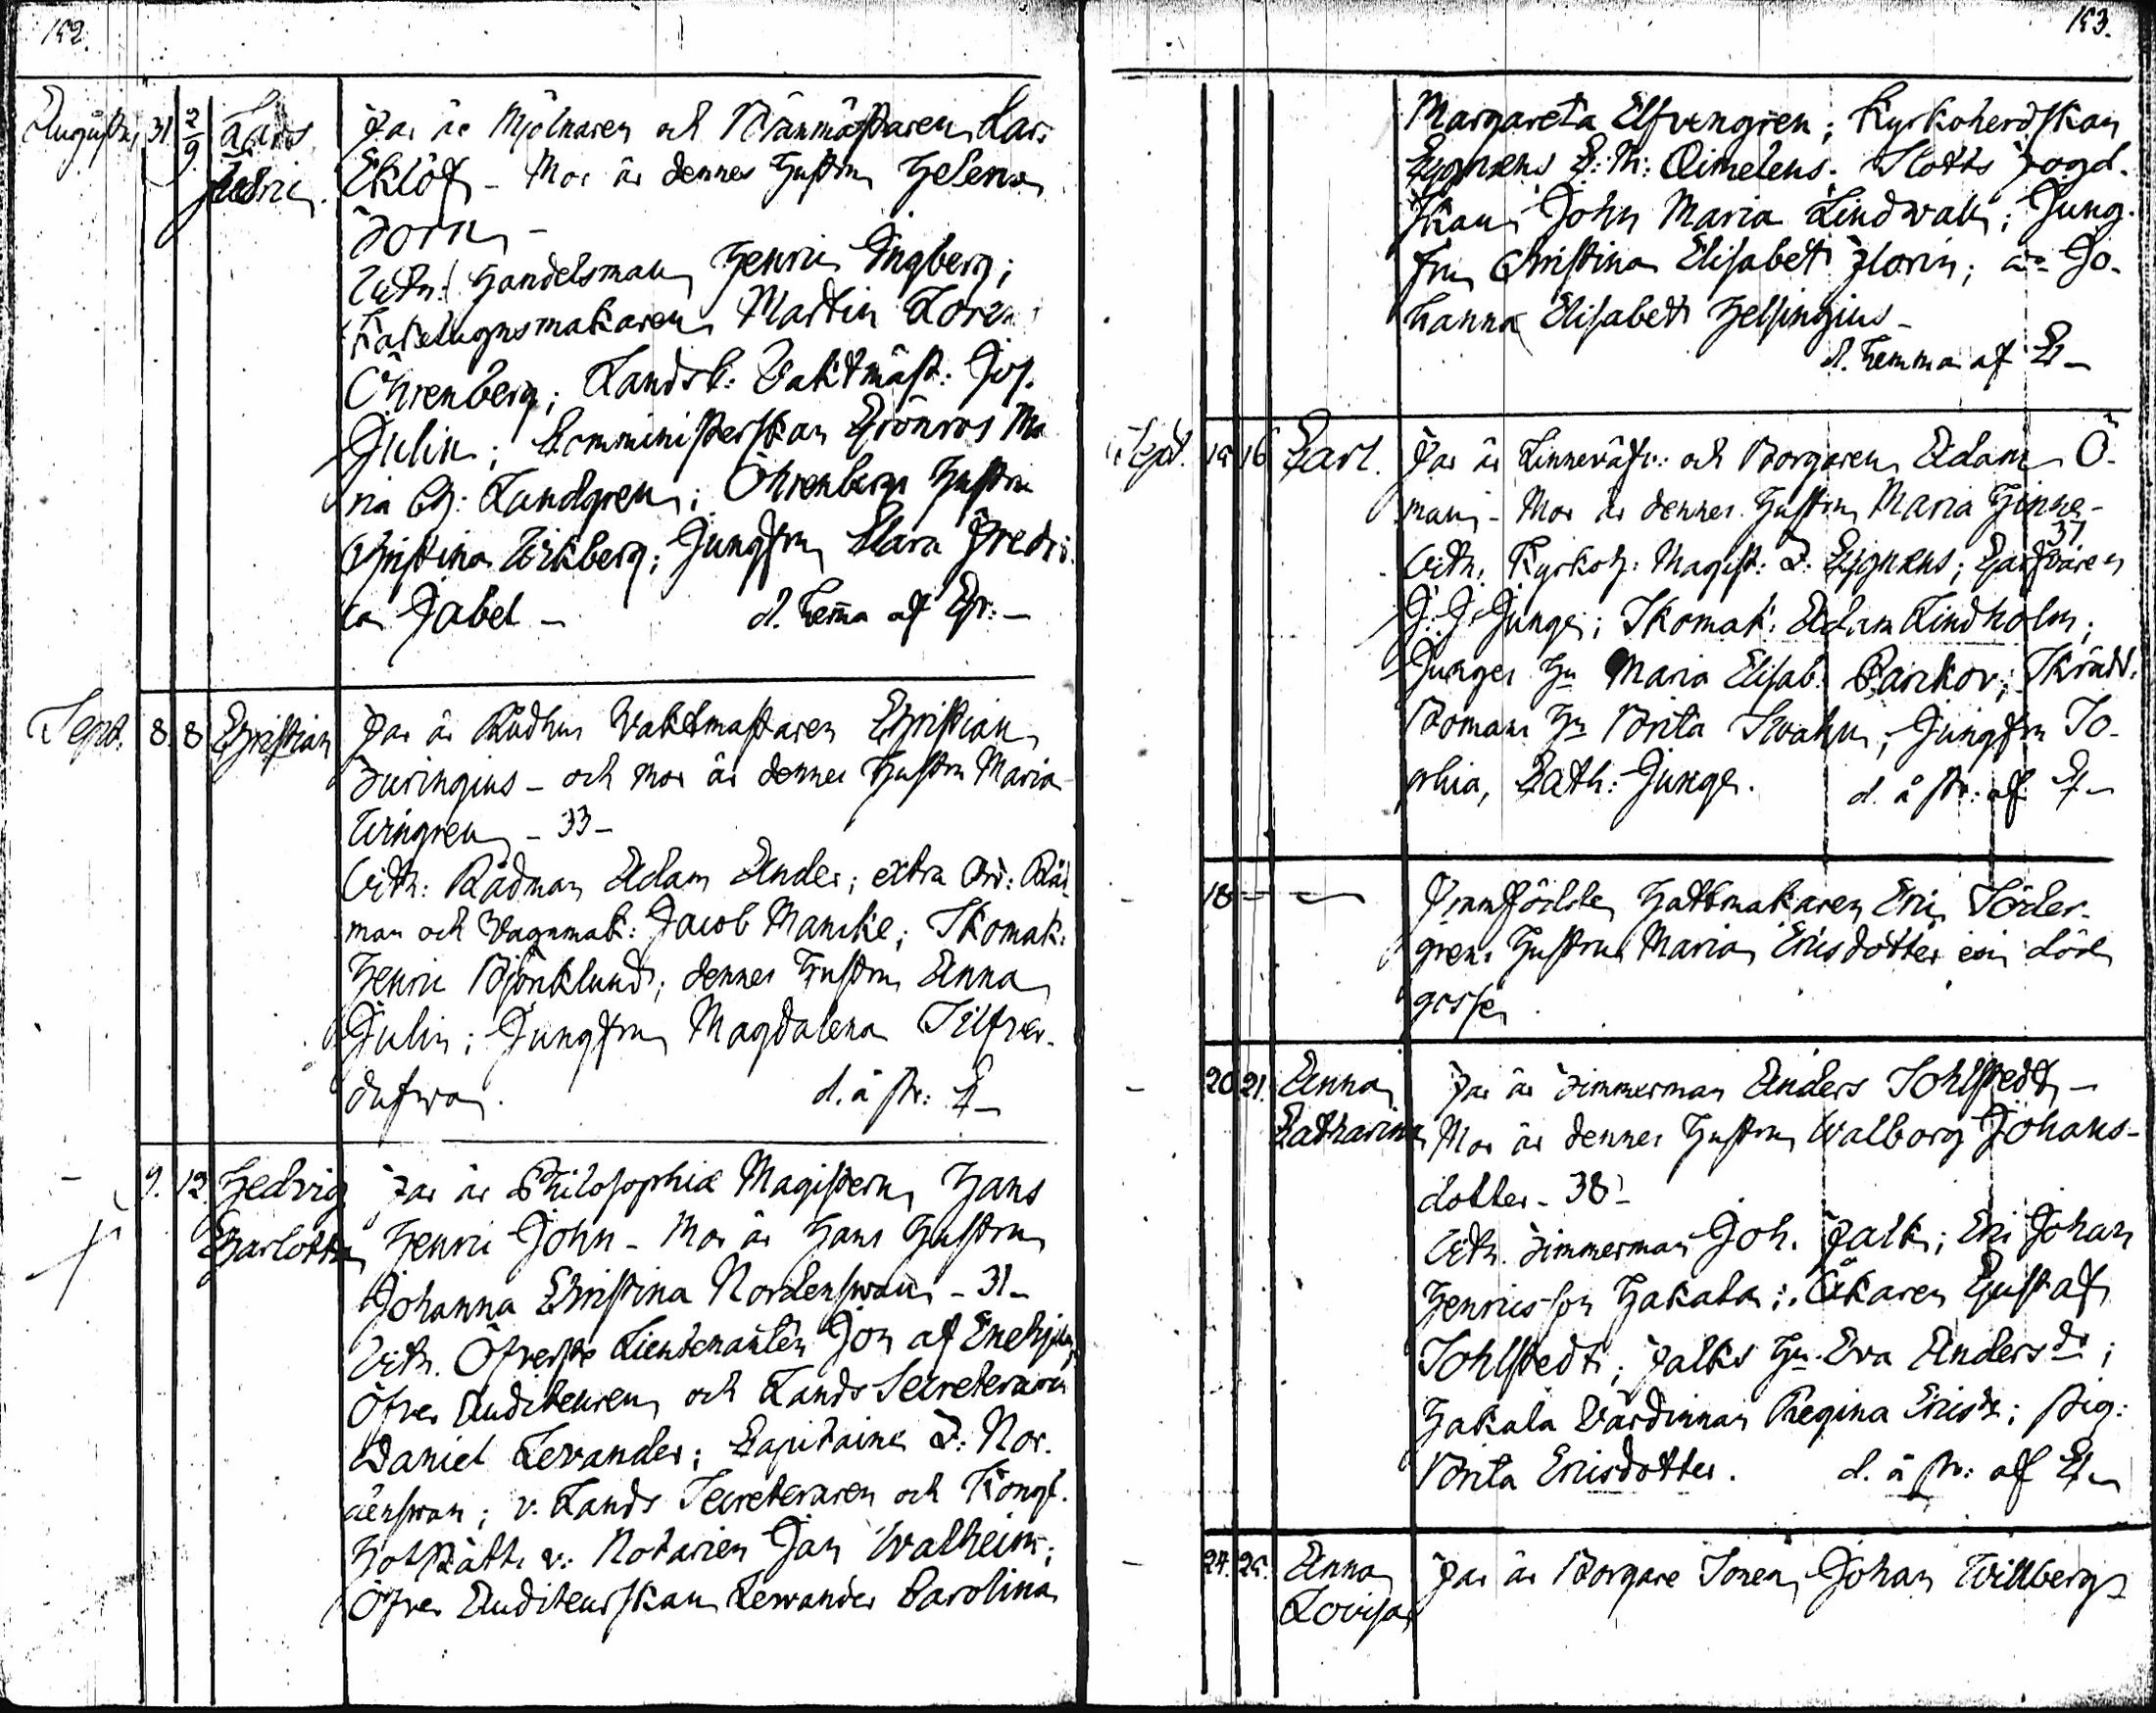 152.
Augustus 31 2/9 Lars Far är Mjölnaren och Brännmästaren Lars
Henric. Eklöf - Mor är dennes Hustru Helena
Forn -
Vittn: Handelsman Henric Ingberg;
Kakelugnsmakaren Martin Loren
Öhrenberg; Landsk: Vaktmäst: Jos.
Julin; Comministerskan Grönros Ma
ria Ch: Landgren; Öhrenbergs Hustru
Christina Wikberg; Jungfru Clara Fredri
ca Jabel - d. hema af
Sept. 8. 8 Christian Far är Rådhus Vaktmästaren Christian
Turingius - och Mor är dennes Hustru Maria
Wingren - 33 -
Vittn: Rådman Adam Ander; extra Ord: Råd
man och Vagnmak: Jacob Mancke; Skomak:
Henric Björklund; dennes Hustru Anna
Julin; Jungfru Magdalena Silfver-
dufwa. d. å st:
- 9. 12. Hedvig Far är Philosophiæ Magistern Hans
Charlotta Henric John - Mor är Hans Hustru
Johanna Christina Nordenswan - 31 -
Vittn. Öfverste Lieutenanten Jon af Enehjelm;
Öfver Auditeuren och Lands Secreteraren
Daniel Levander; Capitaine D: Nor-
denswan; v. Lands Secreteraren och Kongl.
HofRätts v: Notarien Jan Walheim;
Öfver Auditeurskan Lewander Carolina
153.
Margareta Elfvengren; Kyrkoherdskan
Cygnæus E: M: Aimelæus. Slotts Fogd-
skan John Maria Lindwall; Jung-
fru Christina Elisabeth Florin; dito Jo-
hanna Elisabeth Helsingius -
d. hemma af
Sept. 15 16 Carl. Far är Linneväfv: och Borgaren Adam Ö-
man - Mor är dennes Hustru Maria Hinne -
37
Vittn: Kyrkoh: Magist: Z. Cygnæus; Garfvaren
J: J: Junge; Skomak: Adam Lindholm;
Junges Hu Maria Elisab: Parckov; Skrädd.
Bomans Hu Brita Swahn; Jungfru So-
phia, Cath: Junge. d. å st: af
- 18 - - Framfödde Hattmakaren Eric Söder-
grens Hustru Maria Ericsdotter en död
gosse
- 20. 21. Anna Far är Timmerman Anders Sohlstedt -
Catharina Mor är dennes Hustru Walborg Johans-
dotter - 38 -
Vittn. Timmerman Joh. Falk; Eric Johan
Henricsson Hakala; Åkaren Gustaf
Sohlstedt; Falks Hu. Eva Andersdr;
Hakala Värdinnan Regina Ericsdr; pig:
Brita Ericsdotter. d. å st: af
- 24. 25. Anna Far är Borgare Sonen Johan Willberg
Lovisa